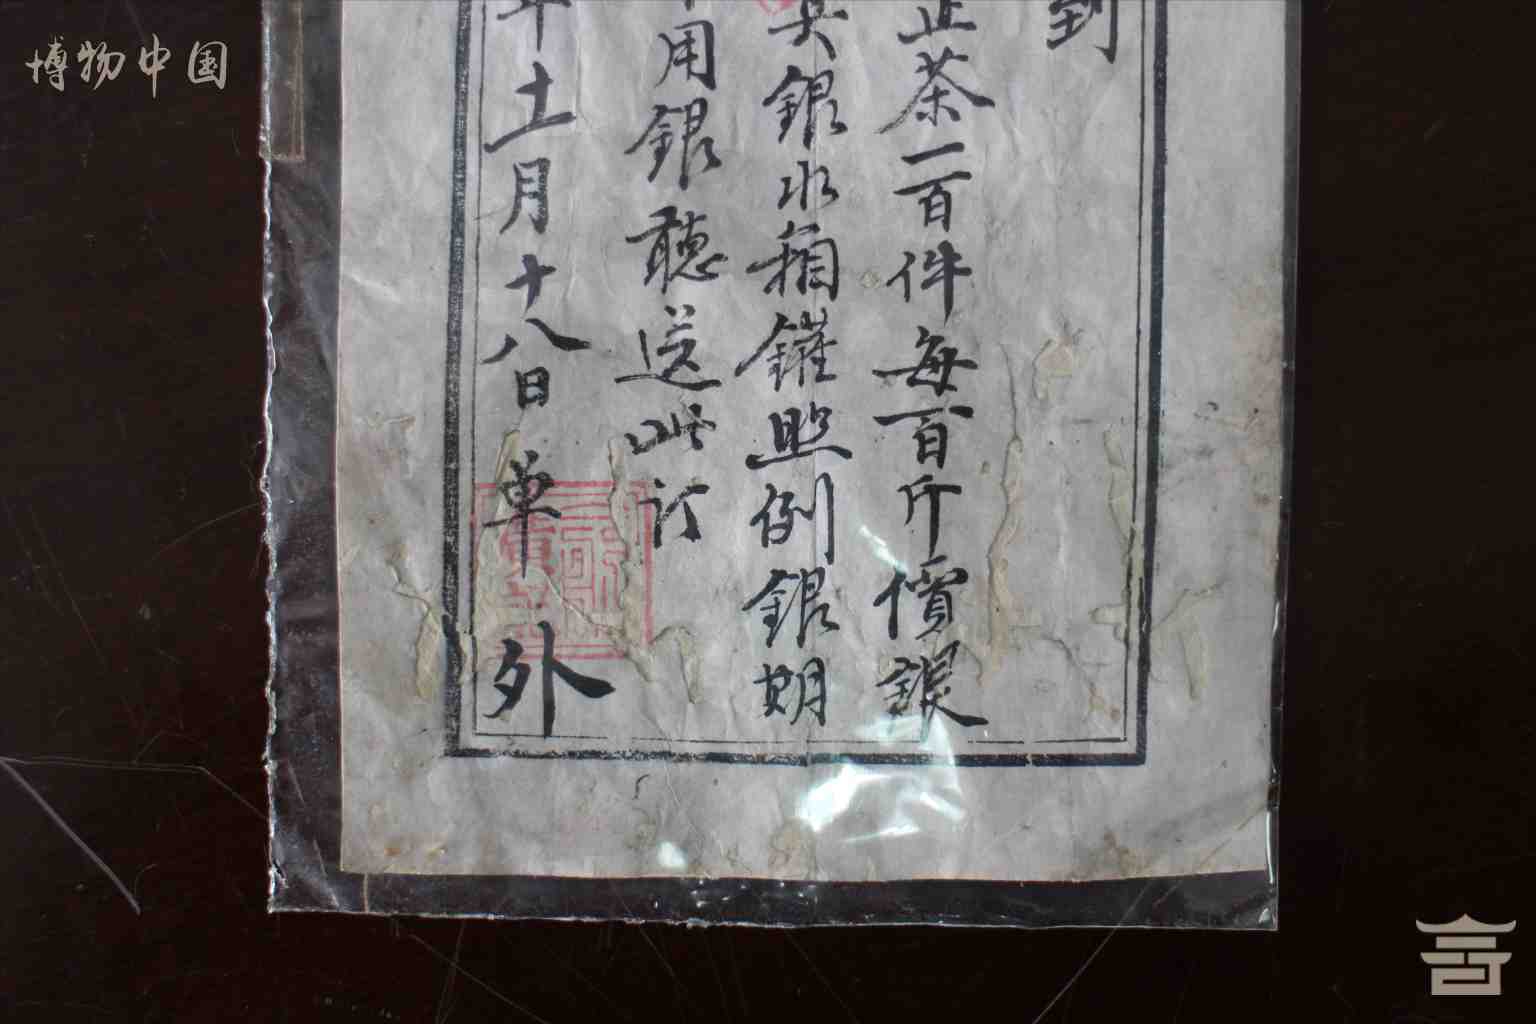 博物中国
到
正茶一百件每百斤價銀
兵銀水箱鑵照例銀期
用銀聽送此訂
年十一月十八日單 外